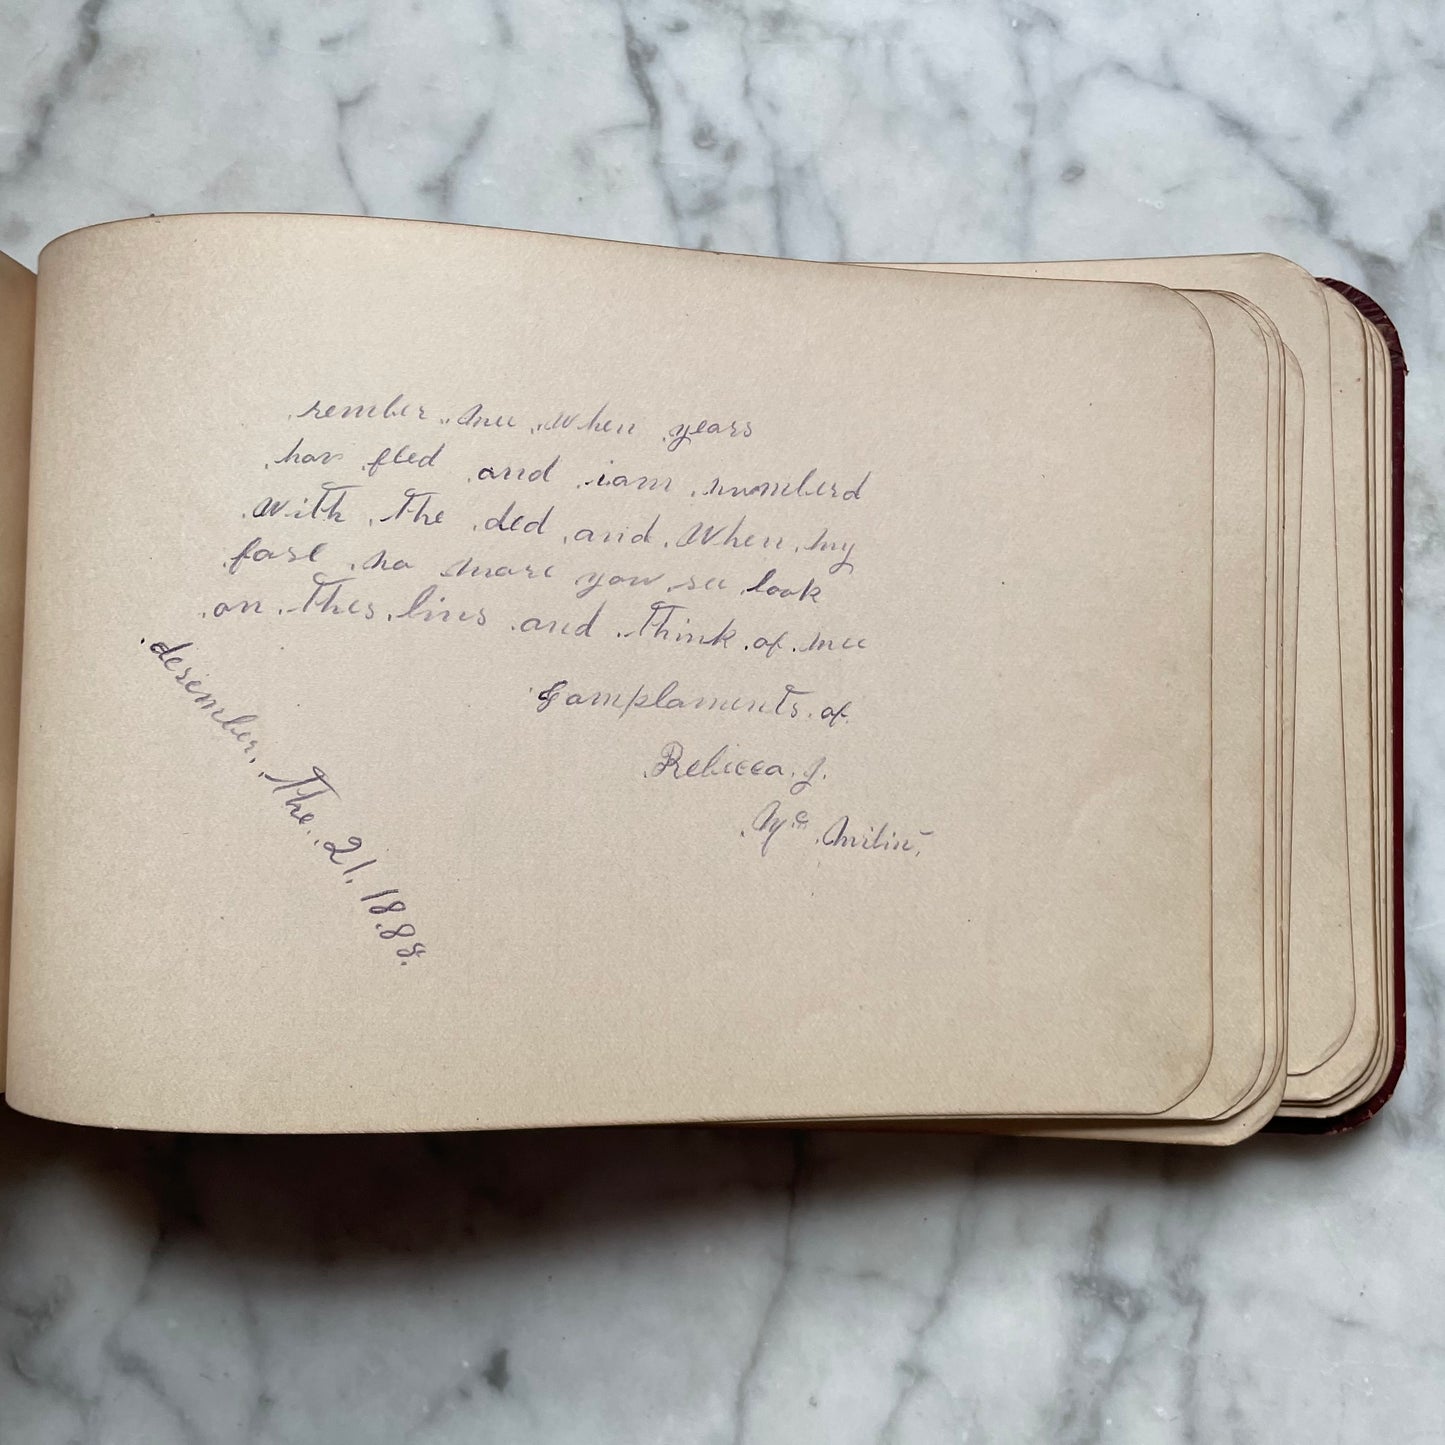 rember mee when years
hav fled and iam numberd
with the ded and when my
fase no more you see look
on thes lins and think of mee
Complaments of
Rebicca. J.
Mc
desember. The. 21. 1888.